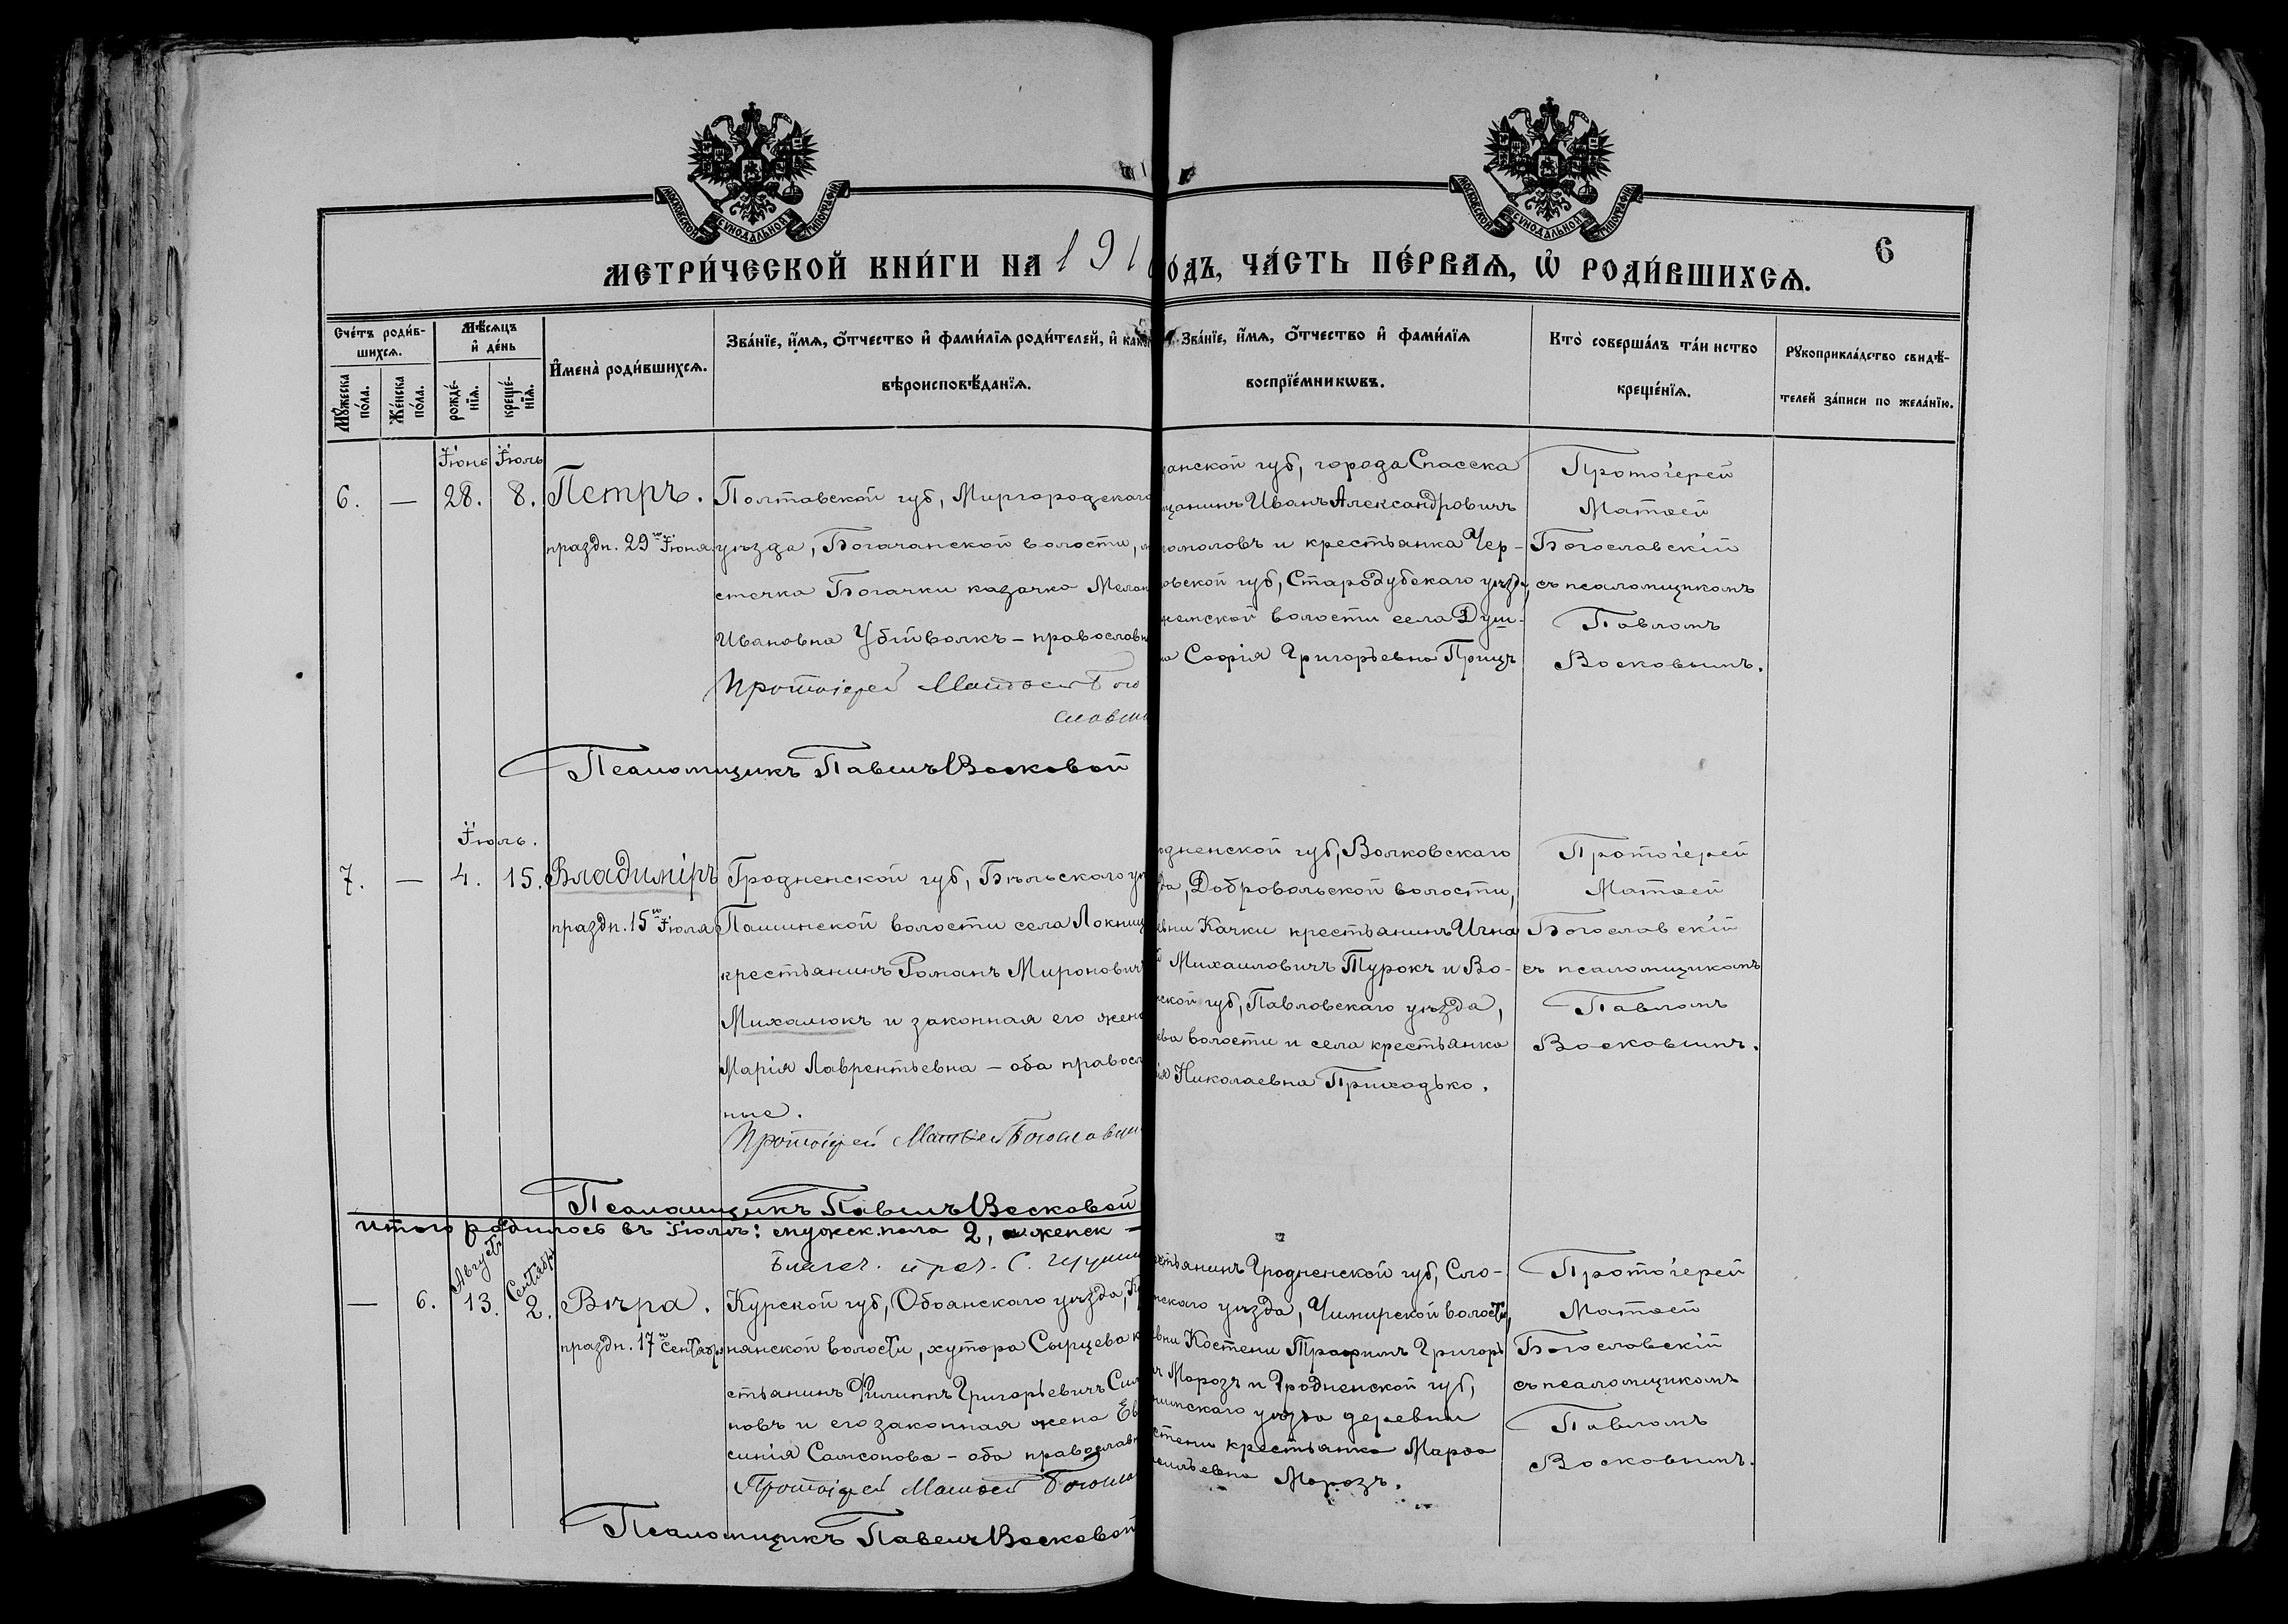 МОСКОВСКОЙ СѴНОДАЛЬНОЙ ТИПОГРАФІИ
МОСКОВСКОЙ СѴНОДАЛЬНОЙ ТИПОГРАФІИ
МЕТРИ́ЧЕСКОЙ КНИ́ГИ НА 191
О́ДЪ, ЧА́СТЬ ПЕ́РВАѦ, Ѡ҆ РОДИ́ВШИХСѦ.
6
Сче́тъ роди́в-
шихсѧ.
Мꙋ́жеска по́ла.
Же́нска по́ла.
Мѣ́сѧцъ
и҆ де́нь
рожде́-
нїѧ.
креще́-
нїѧ.
И҆мена̀ роди́вшихсѧ.
Зва́нїе, и҆́мѧ, ѻ҆́тчество и҆ фами́лїѧ роди́телей, и҆
вѣроисповѣ́данїѧ.
Зва́нїе, и҆́мѧ, ѻ҆́тчество и҆ фами́лїѧ
воспрїе́мникѡвъ.
Кто̀ соверша́лъ та́инство
креще́нїѧ.
Рꙋкоприкла́дство свидѣ́-
телей за́писи по жела́нїю.
Іюнь Іюль
6. — 28. 8. Петръ.
праздн. 29го Іюня
Полтавской губ, Миргородскаго
уѣзда, Богачанской волости,
стечка Богачки казачка Мелан
Ивановна Убійволкъ – православн
Протоіерей Матѳей Бого
славск
Псаломщикъ Павелъ Восковой
занской губ, города Спасска
щанинъ Иванъ Александровичъ
омоловъ и крестьянка Чер-
овской губ, Стародубскаго уѣзд,
женской волости села Душ-
на Софія Григорьевна Прищъ
Протоіерей
Матѳей
Богославскій
съ псаломщикомъ
Павломъ
Восковымъ.
Іюль.
7. — 4. 15. Владиміръ
праздн. 15го Іюля
Гродненской губ, Бѣльскаго уѣ
Пашинской волости села Локниц
крестьянинъ Романъ Мироновичъ
Михалюкъ и законная его жена
Марія Лаврентьевна – оба правосл
ные.
Протоіерей Матѳей Богославски
Псаломщикъ Павелъ Восковой
одненской губ, Волковскаго
да, Добровольской волости,
евни Качки крестьянинъ Игна
й Михаиловичъ Турокъ и Во-
ской губ, Павловскаго уѣзда,
ева волости и села крестьянка
ія Николаевна Приходько.
Протоіерей
Матѳей
Богославскій
съ псаломщикомъ
Павломъ
Восковымъ.
итого родилось въ Іюлѣ: мужск. пола 2, женск —
Август Сентябрь
— 6. 13. 2. Вѣра.
праздн. 17го Сентября
Курской губ, Обоянскаго уѣзда,
нянской волости, хутора Сырцева к
стьянинъ Филиппъ Григорьевичъ
новъ и его законная жена Ев
синія Самсонова – оба православн
Протоіерей Матѳей Богосла
Псаломщикъ Павелъ Восковой
естьянинъ Гродненской губ, Сло-
нскаго уѣзда, Чимирской волости,
евни Костени Трофимъ Григорь
чъ Морозъ и Гродненской губ,
нимскаго уѣзда деревни
стени крестьянка Марѳа
сильевна Морозъ.
Протоіерей
Матѳей
Богословскій
съ псаломщикомъ
Павломъ
Восковымъ.